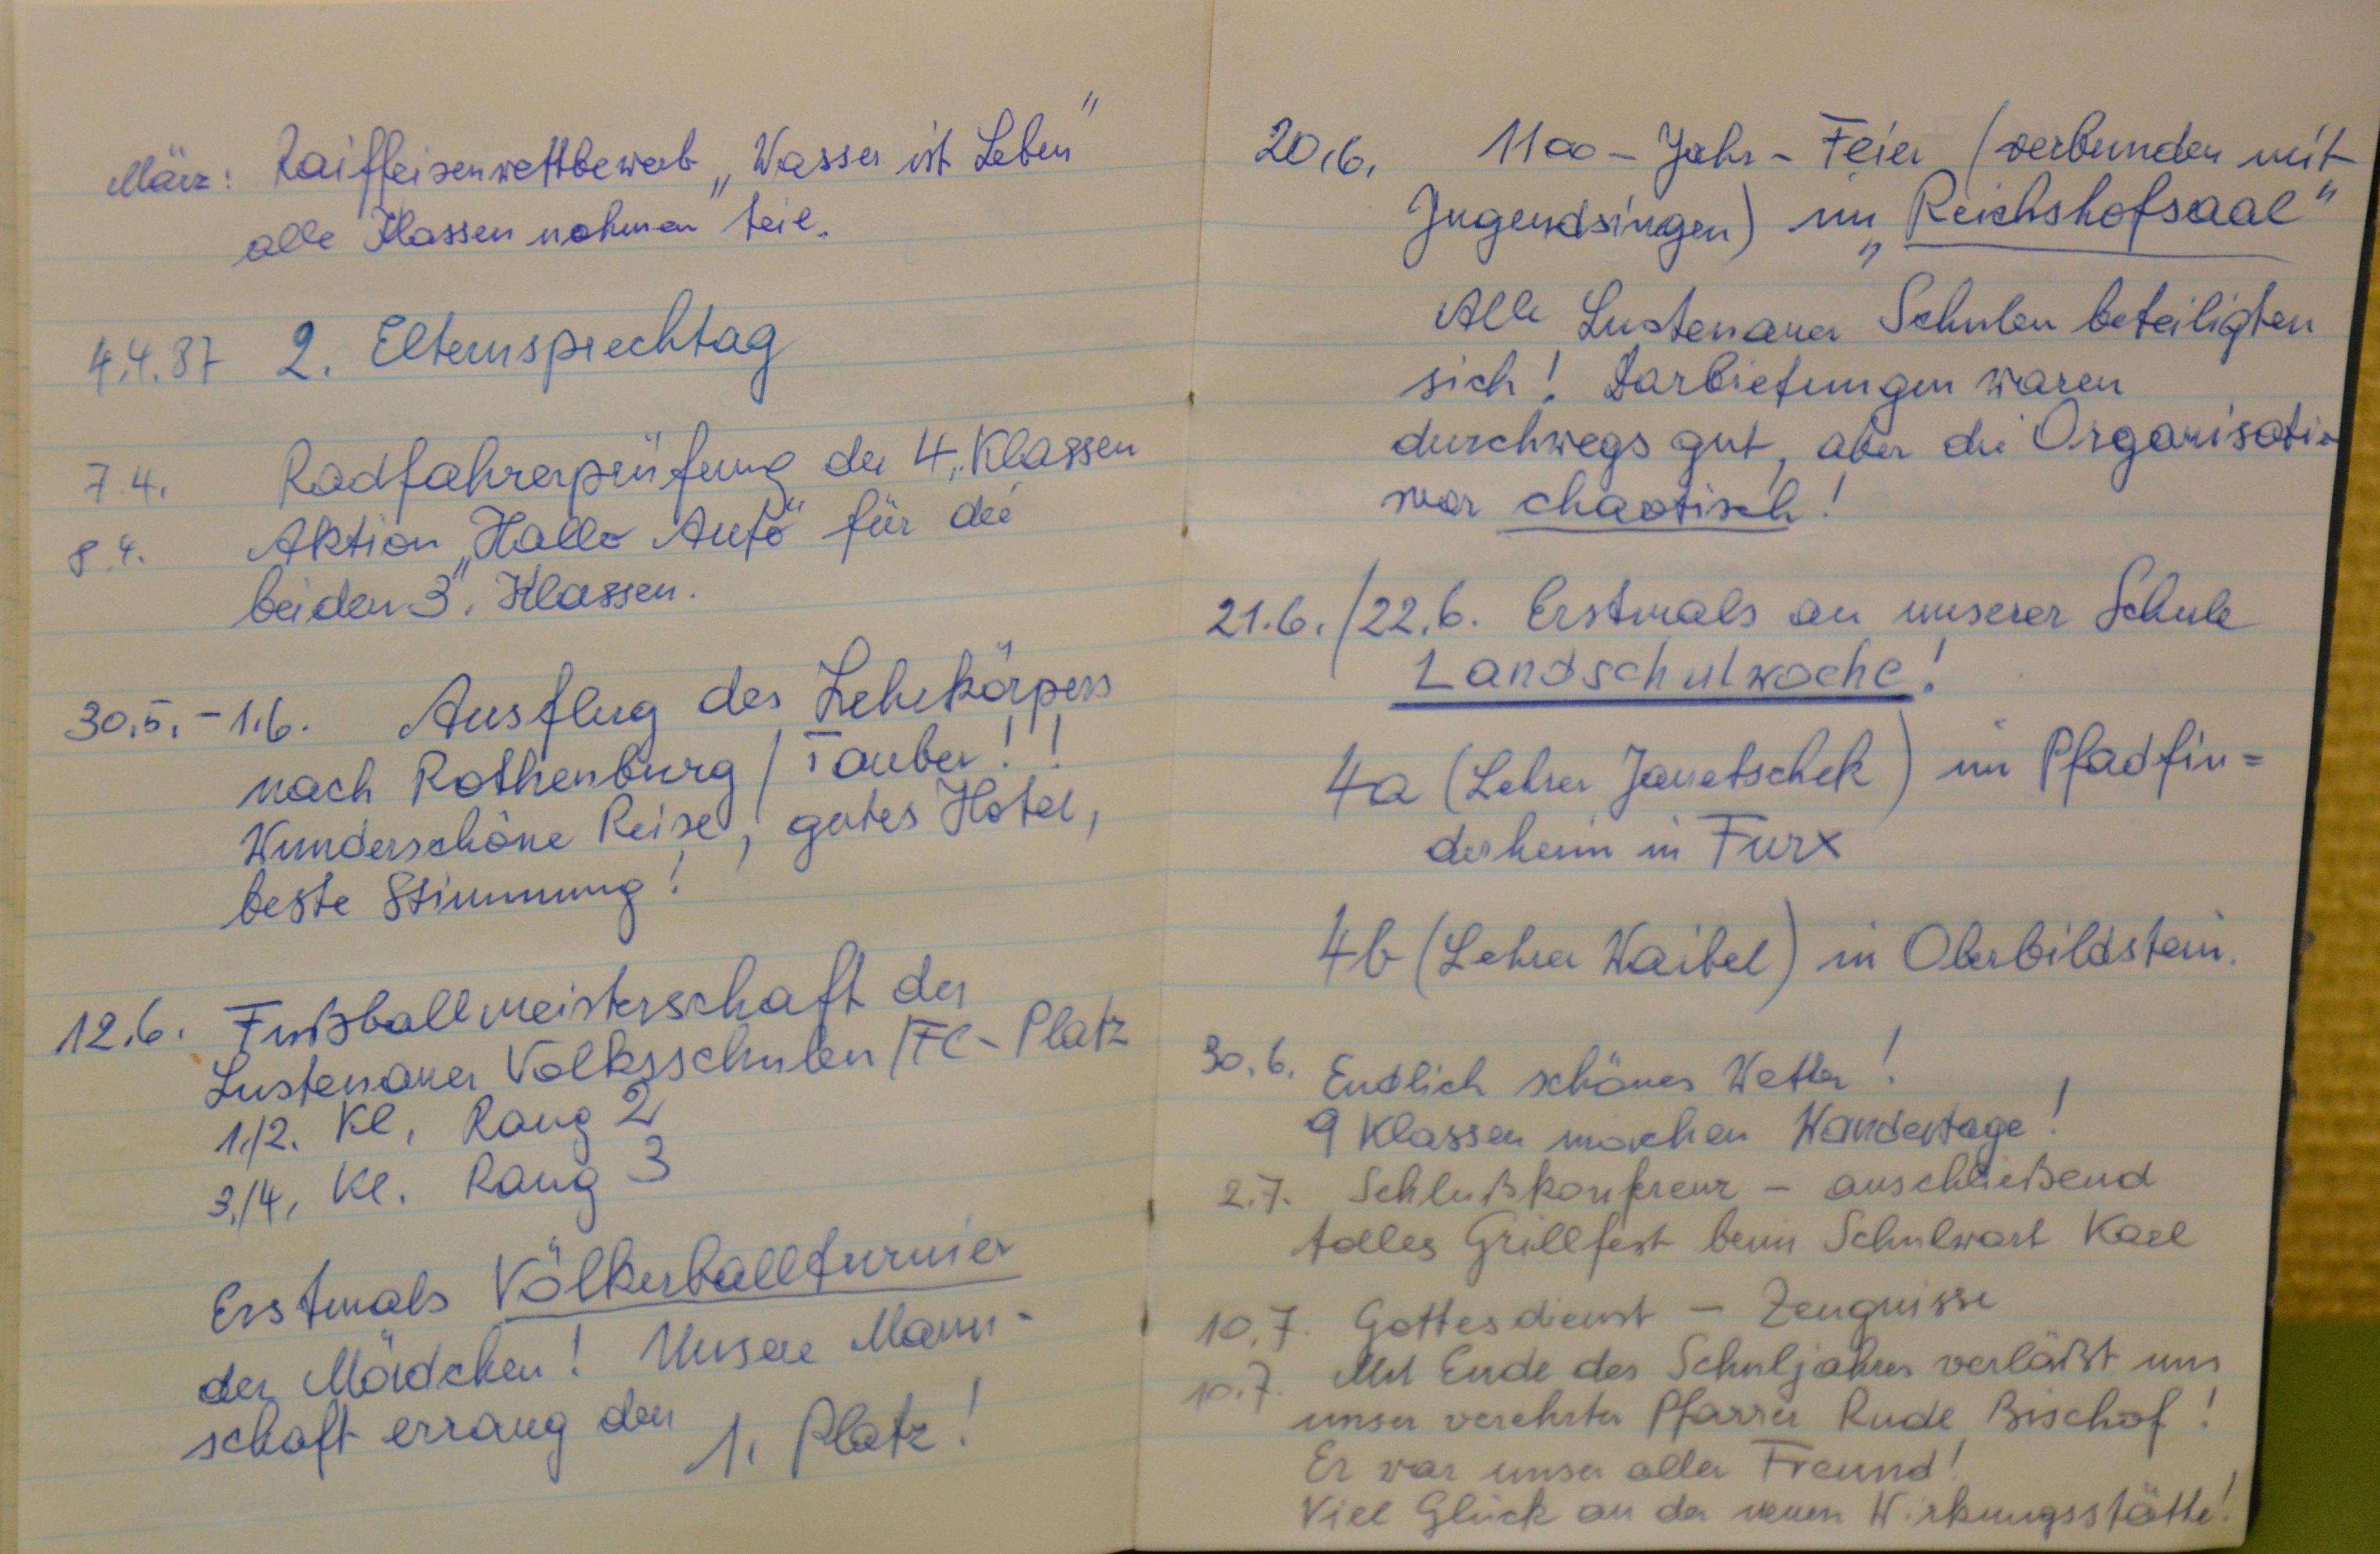 März: Raiffeisenwettbewerb „Wasser ist Leben"
alle Klassen nahmen teil.
4.4.87 2. Elternsprechtag
7.4. Radfahrerprüfung der 4. Klassen
8.4. Aktion „Hallo Auto" für die
beiden 3. Klassen.
30.5.-1.6. Ausflug des Lehrkörpers
nach Rothenburg / Tauber!!
Wunderschöne Reise, gutes Hotel,
beste Stimmung!
12.6. Fußballmeisterschaft der
Lustenauer Volksschulen / FC-Platz
1./2. Kl. Rang 2
3./4. Kl. Rang 3
Erstmals Völkerballturnier
der Mädchen! Unsere Mann-
schaft errang den 1. Platz!
20.6. 1100-Jahr-Feier (verbunden mit
Jugendsingen) im „Reichshofsaal"
Alle Lustenauer Schulen beteiligten
sich! Darbietungen waren
durchwegs gut, aber die Organisatio
war chaotisch!
21.6./22.6. Erstmals an unserer Schule
Landschulwoche!
4a (Lehrer Janetschek) im Pfadfin=
derheim in Furx
4b (Lehrer Waibel) in Oberbildstein.
30.6. Endlich schönes Wetter!
9 Klassen machen Wandertage!
2.7. Schlußkonferenz - anschließend
tolles Grillfest beim Schulwart Karl
10.7. Gottesdienst - Zeugnisse
10.7. Mit Ende des Schuljahres verläßt uns
unser verehrter Pfarrer Rude Bischof!
Er war unser aller Freund!
Viel Glück an der neuen Wirkungsstätte!